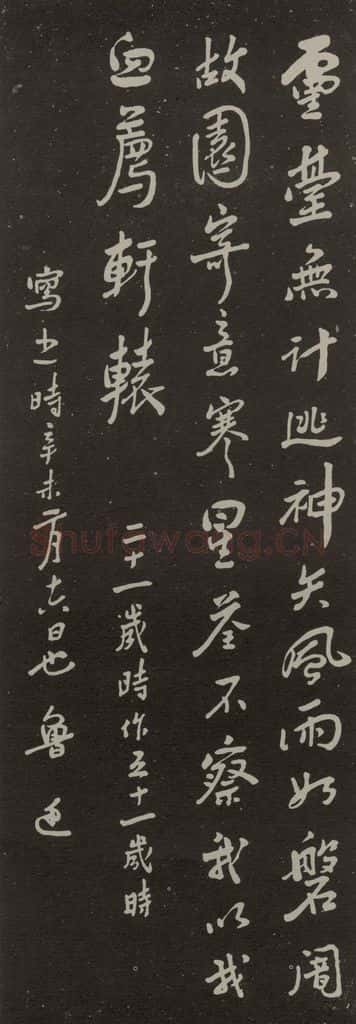 靈臺無計逃神矢風雨如磐闇
故園寄意寒星荃不察我以我
血薦軒轅 二十一歲時作五十一歲時
寫之時辛未二月十六日也 魯迅
Shufawang.CN